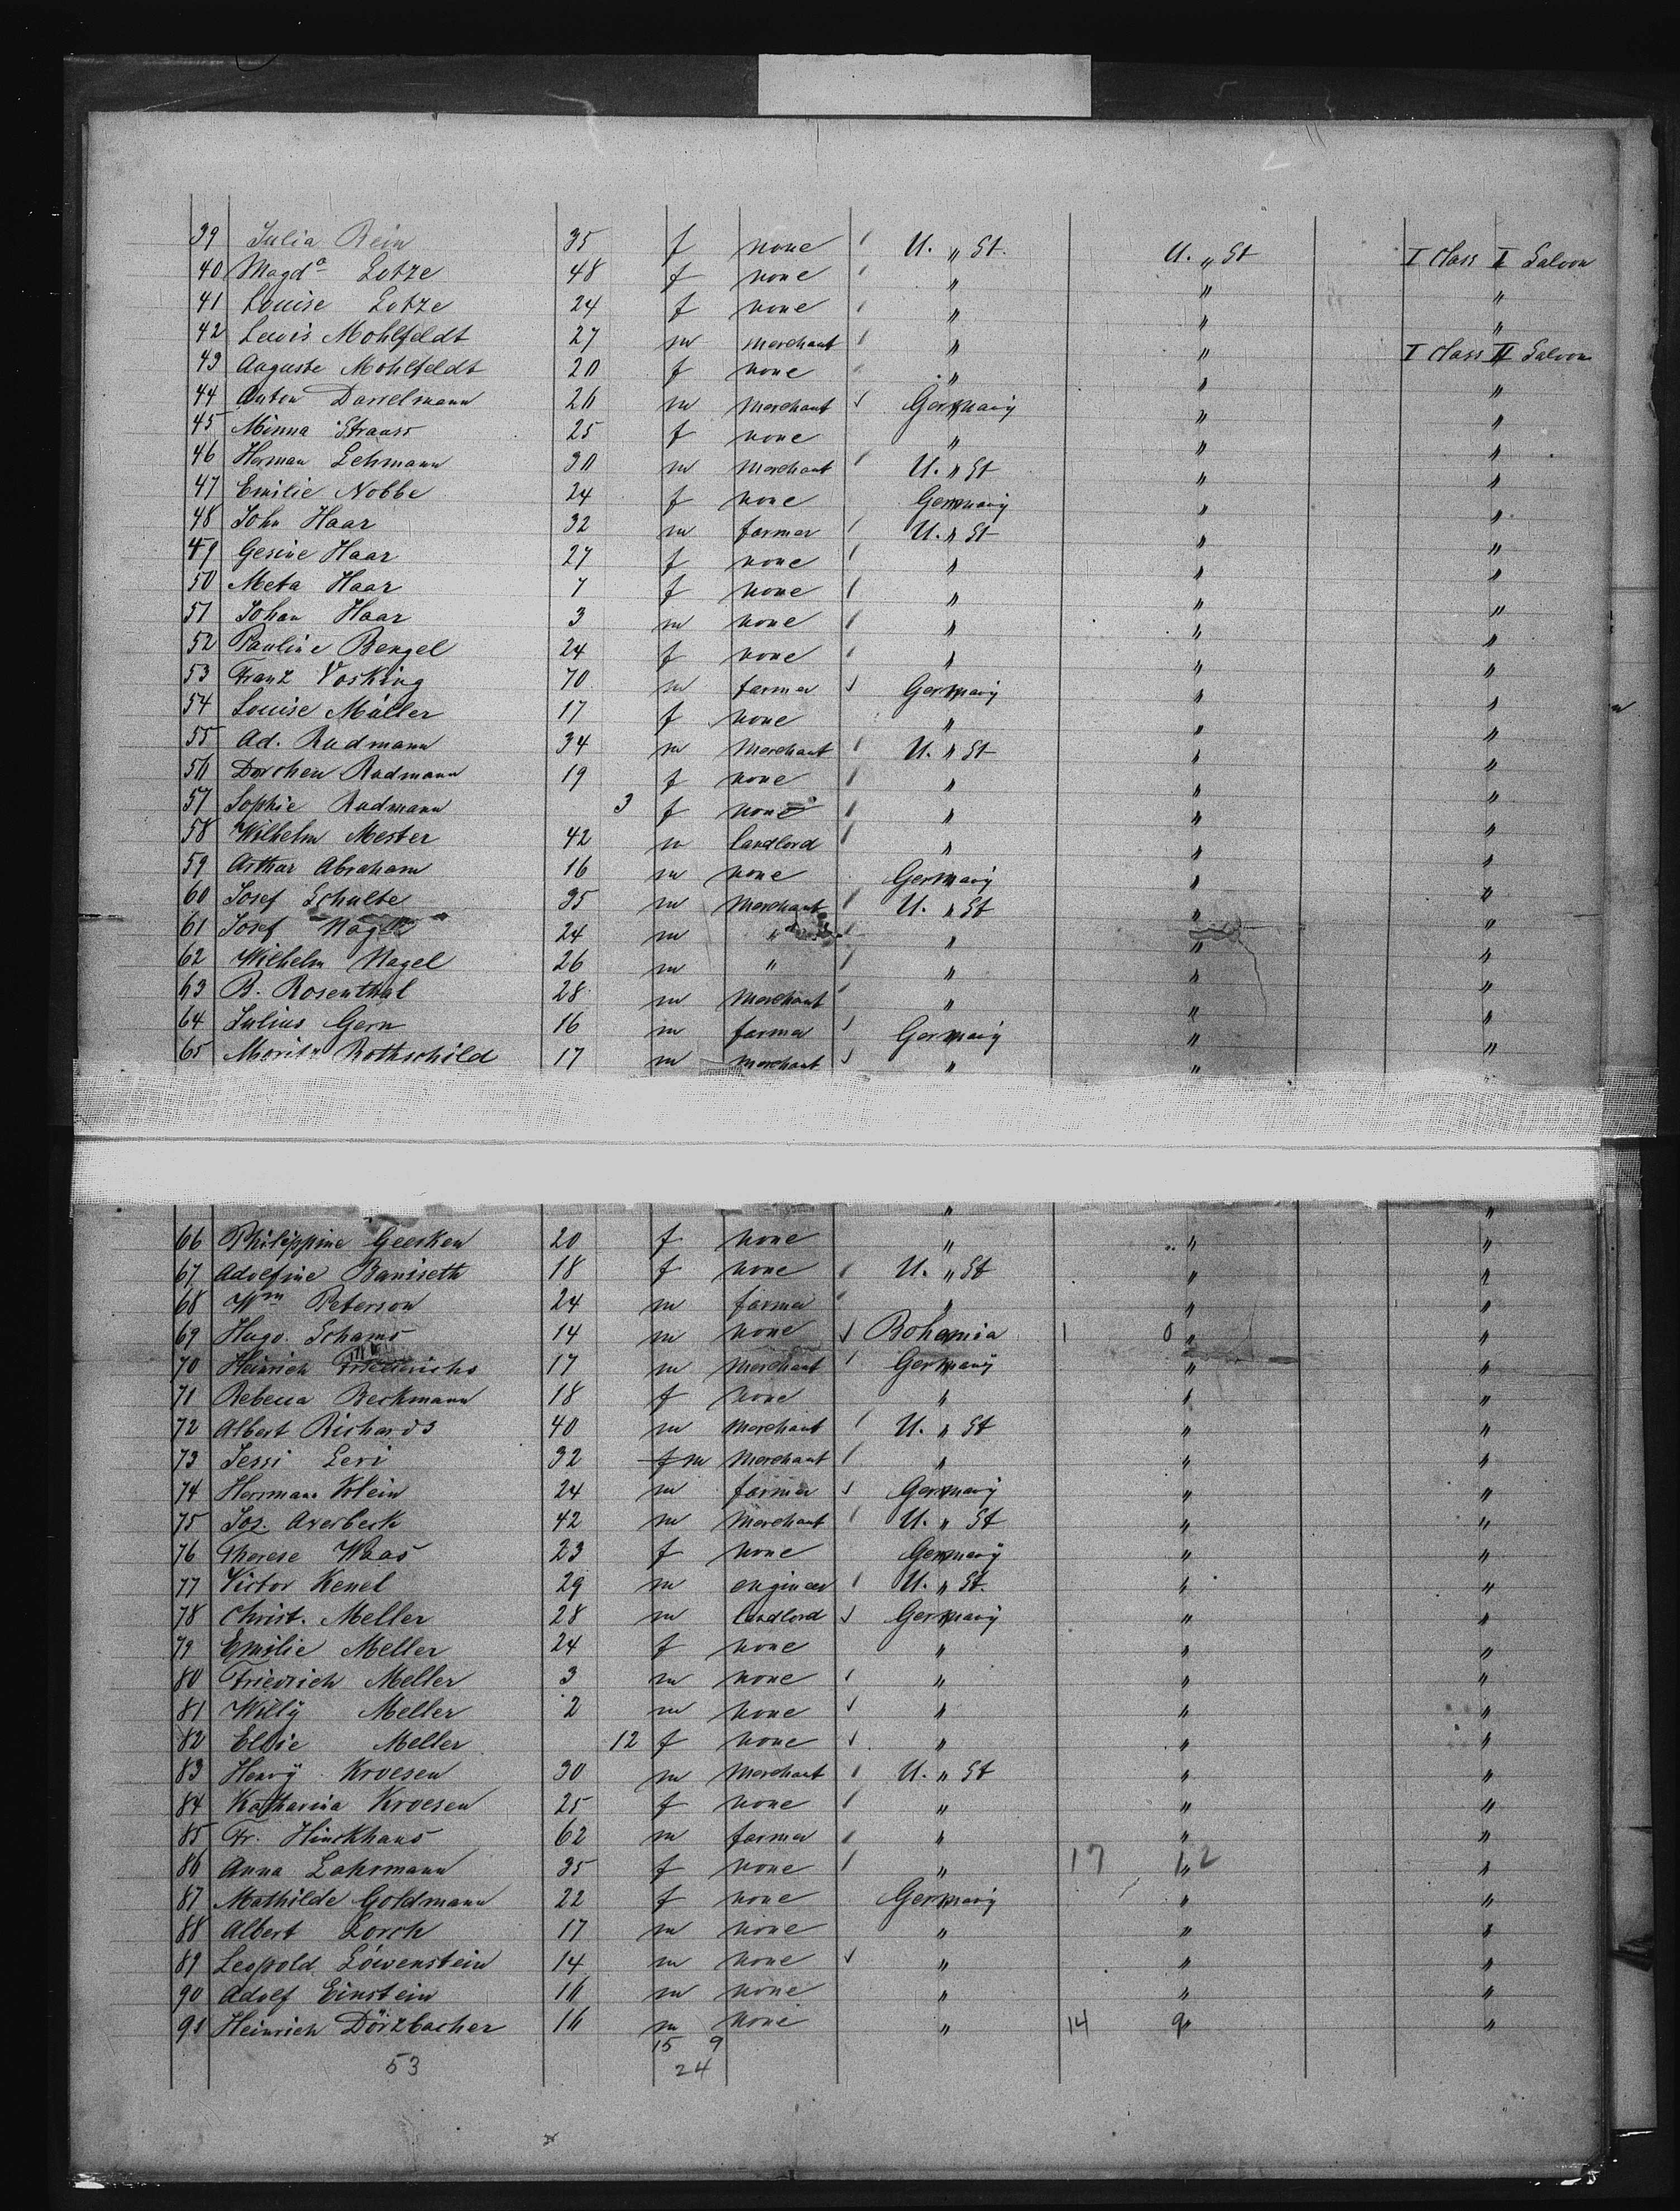 39 Julia Rein 35 f none U. „ St. U. „ St I Class II Saloon
40 Magda Lotze 48 f none „ „ „
41 Louise Lotze 24 f none „ „ „
42 Lewis Mohlfeldt 27 m Merchant „ „ I Class II Saloon
43 Auguste Mohlfeldt 20 f none „ „ „
44 Anton Darrelmann 26 m Merchant Germany „ „
45 Minna Strauss 25 f none „ „ „
46 Herman Lehmann 30 m Merchant U. „ St „ „
47 Emilie Nobbe 24 f none Germany „ „
48 John Haar 32 m farmer U. „ St „ „
49 Gesine Haar 27 f none „ „ „
50 Meta Haar 7 f none „ „ „
51 Johan Haar 3 m none „ „ „
52 Pauline Bengel 24 f none „ „ „
53 Franz Vosking 70 m farmer Germany „ „
54 Louise Müller 17 f none „ „ „
55 Ad. Rudmann 34 m Merchant U. „ St „ „
56 Dorchen Rudmann 19 f none „ „ „
57 Sophie Rudmann 3 f none „ „ „
58 Wilhelm Mester 42 m landlord „ „ „
59 Arthur Abraham 16 m none Germany „ „
60 Josef Schulte 35 m Merchant U. „ St „ „
61 Josef Nagel 24 m „ „ „ „
62 Wilhelm Nagel 26 m „ „ „ „
63 B. Rosenthal 28 m Merchant „ „ „
64 Julius Gern 16 m farmer Germany „ „
65 Moritz Rothschild 17 m Merchant „ „ „
„ „
66 Philippine Geerken 20 f none „ „ „
67 Adolfine Baniseth 18 f none U. „ St „ „
68 Wm Peterson 24 m farmer „ „ „
69 Hugo Schams 14 m none Bohemia 1 0 „ „
70 Heinrich Friedrichs 17 m Merchant Germany „ „
71 Rebecca Beckmann 18 f none „ „ „
72 Albert Richards 40 m Merchant U. „ St „ „
73 Jessi Levi 32 f m Merchant „ „ „
74 Herrman Klein 24 m farmer Germany „ „
75 Jos. Averbeck 42 m Merchant U. „ St „ „
76 Therese Waas 23 f none Germany „ „
77 Victor Kenel 29 m engineer U. „ St. „ „
78 Christ. Meller 28 m landlord Germany „ „
79 Emilie Meller 24 f none „ „ „
80 Friedrich Meller 3 m none „ „ „
81 Willy Meller 2 m none „ „ „
82 Elsie Meller 12 f none „ „ „
83 Henry Kroesen 30 m Merchant U. „ St „ „
84 Katharina Kroesen 25 f none „ „ „
85 Fr. Hinckhaus 62 m farmer „ „ „
86 Anna Lahrmann 35 f none „ 17 12 „ „
87 Mathilde Goldmann 22 f none Germany „ „
88 Albert Lorch 17 m none „ „ „
89 Leopold Löwenstein 14 m none „ „ „
90 Adolf Einstein 16 m none „ „ „
91 Heinrich Dörzbacher 16 m none „ 14 9 „ „
15 9
53 24